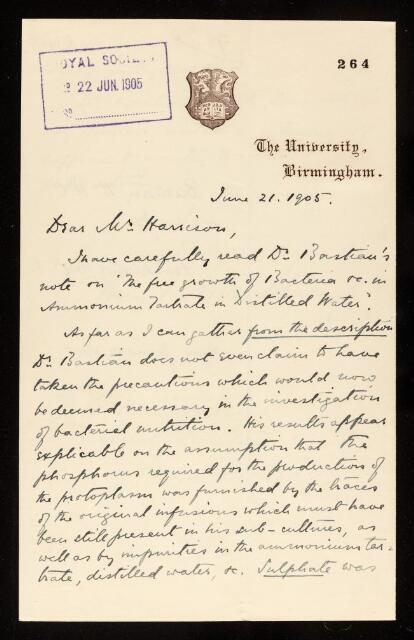 264
ROYAL SOCIETY
22 JUN. 1905
The University,
Birmingham.
June 21. 1905.
Dear Mr. Harrison,
I have carefully read Dr. Bastian's
note on "The free growth of Bacteria &c. in
Ammonium Tartrate in Distilled Water".
As far as I can gather from the description
Dr. Bastian does not even claim to have
taken the precautions which would now
be deemed necessary in the investigation
of bacterial nutrition. His results appear
explicable on the assumption that the
phosphorus required for the production of
the protoplasm was furnished by the traces
of the original infusions which must have
been still present in his sub-cultures, as
well as by impurities in the ammonium tar-
trate, distilled water, &c. Sulphate was